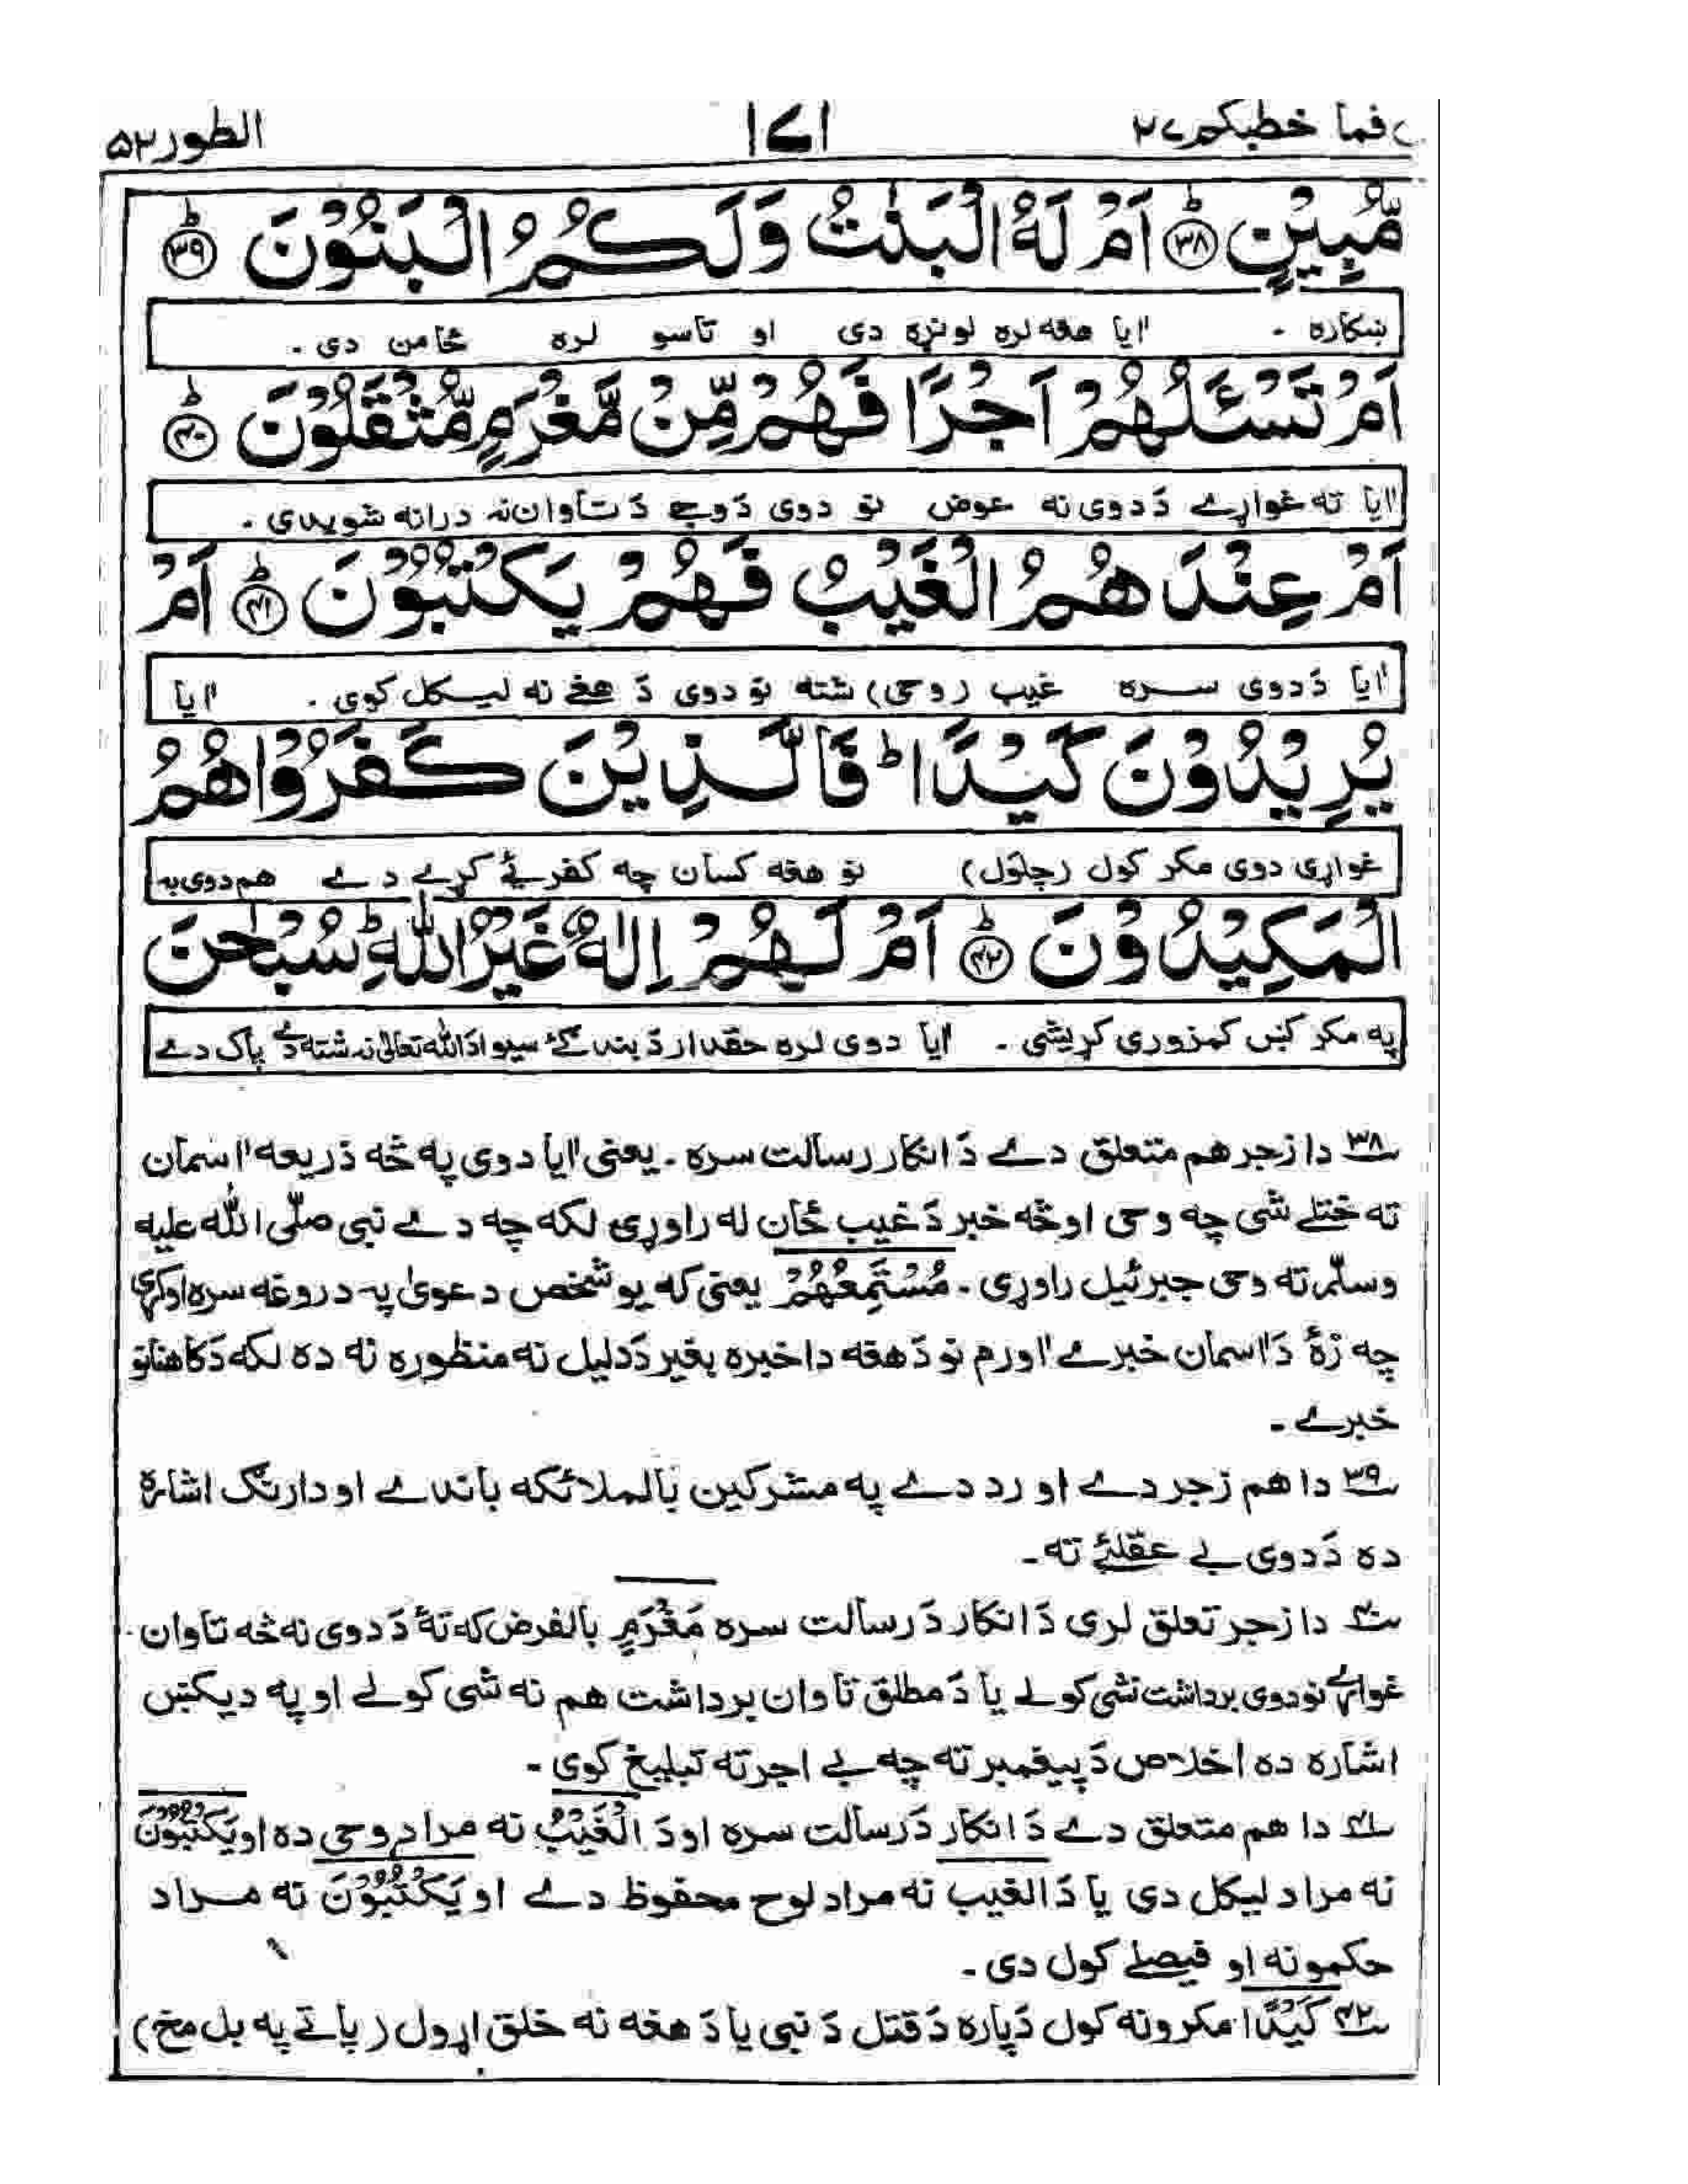 قال فما خطبکم ۲۷ ۱۷۱ الطور ۵۲
مُّبِيْنٍ ۳۸ اَمْ لَهُ الْبَنٰتُ وَلَكُمُ الْبَنُوْنَ ۳۹
ښکاره - اٰیا هغه لره لونړه دی او تاسو لره ځامن دی -
اَمْ تَسْـَٔلُهُمْ اَجْرًا فَهُمْ مِّنْ مَّغْرَمٍ مُّثْقَلُوْنَ ۴۰
اٰیا ته غواړے دَ دوی نه عوض نو دوی دَ وجے دَ تاوان نه درانه شویدی -
اَمْ عِنْدَ هُمُ الْغَيْبُ فَهُمْ يَكْتُبُوْنَ ۴۱ اَمْ
اٰیا دَ دوی سره غیب (وحی) شته نو دوی دَ هغے نه لیکل کوی - اٰیا
يُرِيْدُوْنَ كَيْدًا ؕ فَالَّذِيْنَ كَفَرُوْا هُمُ
غواړی دوی مکر کول (چلول) نو هغه کسان چه کفر ئے کړے دے هم دوی به
الْمَكِيْدُوْنَ ۴۲ اَمْ لَهُمْ اِلٰهٌ غَيْرُ اللّٰهِ ؕ سُبْحٰنَ
په مکر کښ کمزوری کړیشی - اٰیا دوی لره حقدار دَ بندگئ سیوا دَ الله تعالیٰ نه شته دے پاک دے
۳۸ دا زجر هم متعلق دے دَ انکار رسالت سره - یعنی اٰیا دوی په څه ذریعه اٰسمان
ته ختلے شی چه وحی او څه خبر دَ غیب ځان له راوړی لکه چه دے نبی صلّی الله علیه
وسلّم ته وحی جبرئیل راوړی - مُسْتَمِعُهُمْ یعنی که یو شخص دعویٰ په دروغه سره اوکړی
چه زهٔ دَ اٰسمان خبرے اٰورم نو دَ هغه دا خبره بغیر دَ دلیل نه منظوره نه ده لکه دَ کاهنانو
خبرے -
۳۹ دا هم زجر دے او رد دے په مشرکین بالملائکه باندے او دارنگ اشاره
ده دَ دوی بے عقلئ ته -
۴۰ دا زجر تعلق لری دَ انکار دَ رسالت سره مَغْرَمٍ بالفرض که تهٔ دَ دوی نه څه تاوان
غواړے نو دوی برداشت نشی کولے یا دَ مطلق تاوان برداشت هم نه شی کولے او په دیکښ
اشاره ده اخلاص دَ پیغمبر ته چه بے اجر ته تبلیغ کوی -
۴۱ دا هم متعلق دے دَ انکار دَ رسالت سره او دَ الْغَيْبُ نه مراد وحی ده او يَكْتُبُوْنَ
نه مراد لیکل دی یا دَ الغیب نه مراد لوح محفوظ دے او يَكْتُبُوْنَ نه مراد
حکمونه او فیصلے کول دی -
۴۲ كَيْدًا مکرونه کول دَ پاره دَ قتل دَ نبی یا دَ هغه نه خلق اړول (پاتے په بل مخ)